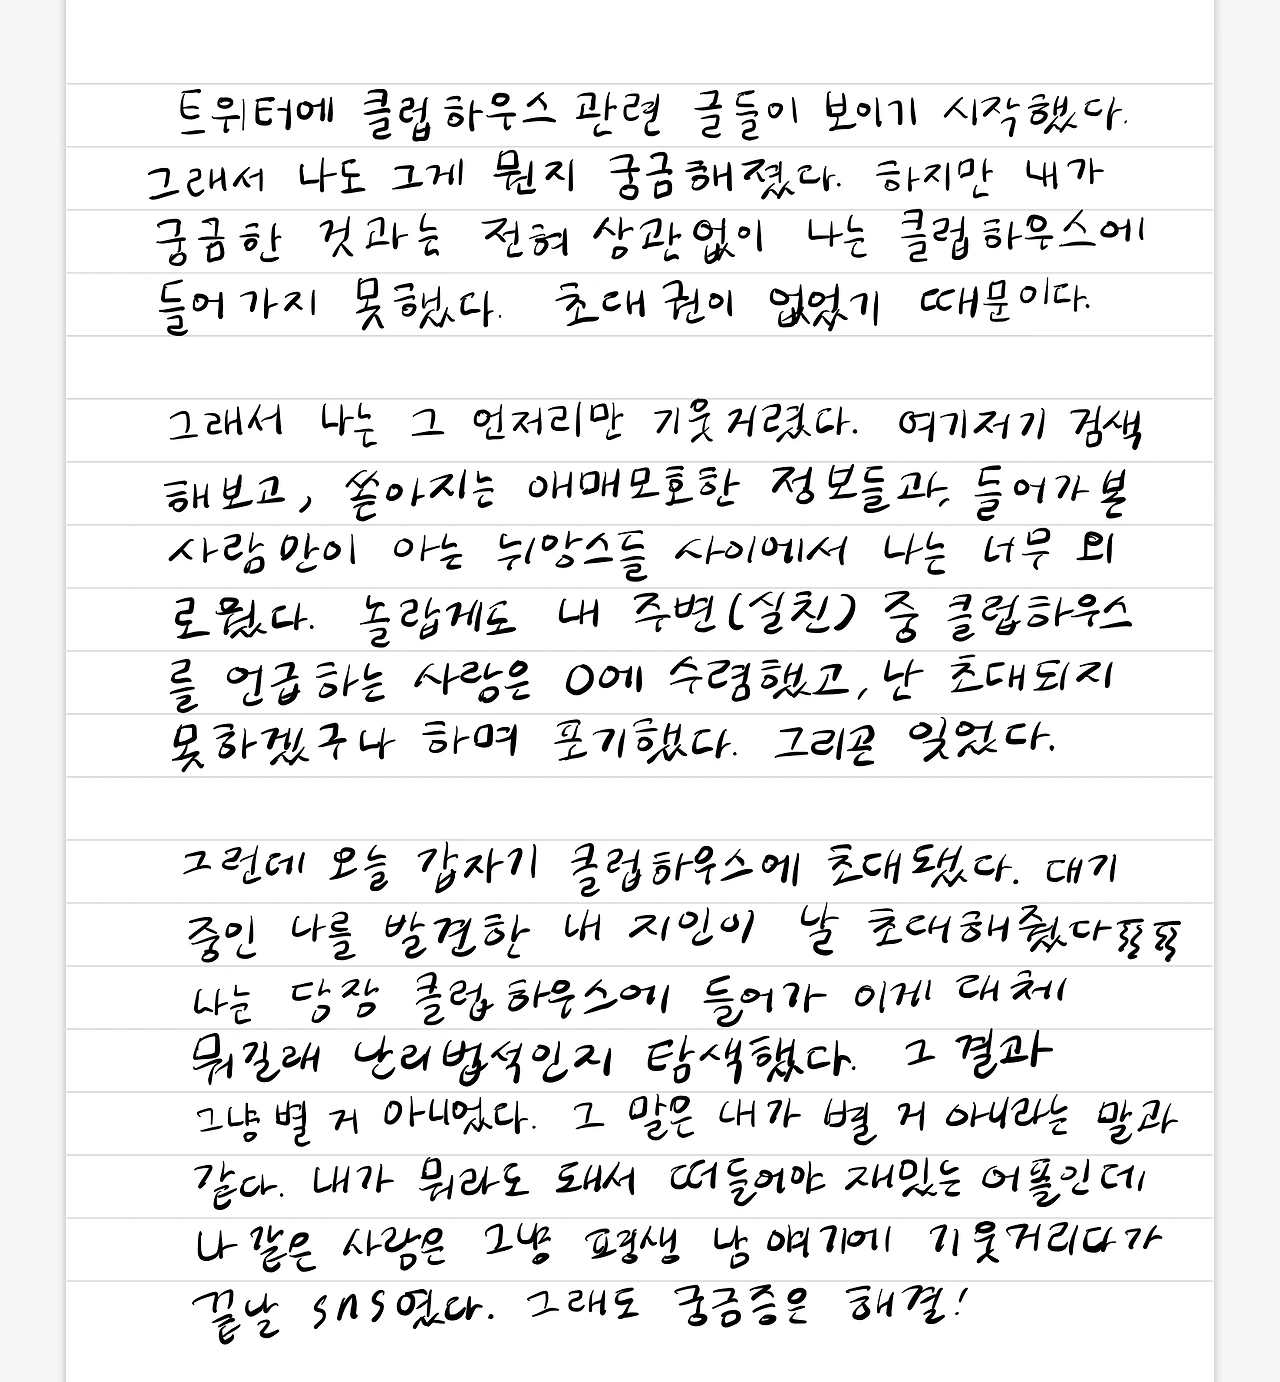 트위터에 클럽하우스 관련 글들이 보이기 시작했다.
그래서 나도 그게 뭔지 궁금해졌다. 하지만 내가
궁금한 것과는 전혀 상관없이 나는 클럽하우스에
들어가지 못했다. 초대권이 없었기 때문이다.
그래서 나는 그 언저리만 기웃거렸다. 여기저기 검색
해보고, 쏟아지는 애매모호한 정보들과, 들어가본
사람만이 아는 뉘앙스들 사이에서 나는 너무 외
로웠다. 놀랍게도 내 주변(실친) 중 클럽하우스
를 언급하는 사람은 0에 수렴했고, 난 초대되지
못하겠구나 하며 포기했다. 그리곤 잊었다.
그런데 오늘 갑자기 클럽하우스에 초대됐다. 대기
중인 나를 발견한 내 지인이 날 초대해줬다ㅠㅠ
나는 당장 클럽하우스에 들어가 이게 대체
뭐길래 난리법석인지 탐색했다. 그 결과
그냥 별 거 아니었다. 그 말은 내가 별 거 아니라는 말과
같다. 내가 뭐라도 돼서 떠들어야 재밌는 어플인데
나 같은 사람은 그냥 평생 남 얘기에 기웃거리다가
끝날 sns였다. 그래도 궁금증은 해결!